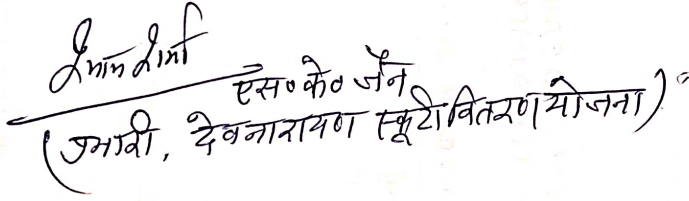 एस० के० जैन
(प्रभारी, देवनारायण स्कूटी वितरण योजना)